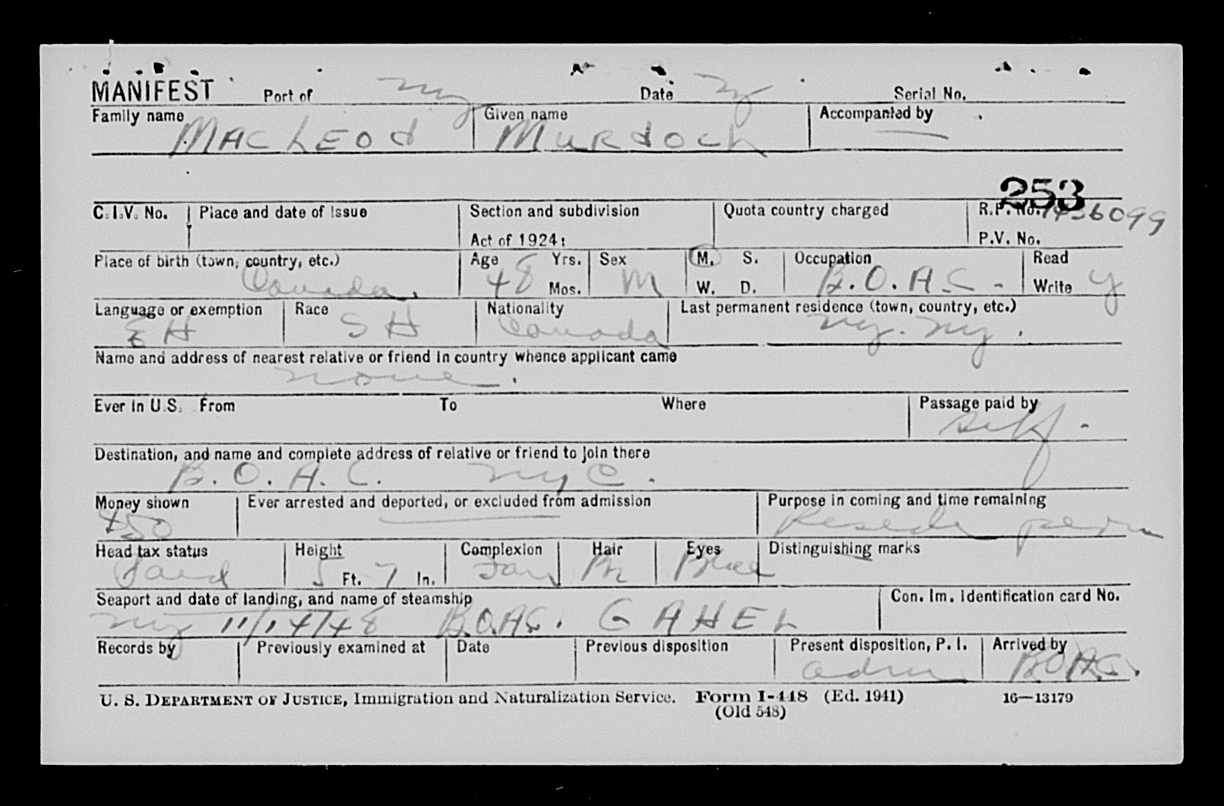 MANIFEST Port of NY Date NY Serial No.
Family name MACLEOD Given name MURdoch Accompanied by
253
C.I.V. No. Place and date of issue Section and subdivision Quota country charged R.P. No.
Act of 1924: P.V. No.
Place of birth (town, country, etc.) Canada. Age 48 Yrs. Mos. Sex M M. S. W. D. Occupation B.O.A.C. Read Write Y
Language or exemption EH Race SH Nationality Canada Last permanent residence (town, country, etc.) NY. NY.
Name and address of nearest relative or friend in country whence applicant came
none.
Ever in U.S. From To Where Passage paid by self.
Destination, and name and complete address of relative or friend to join there
B.O.A.C. NYC.
Money shown Ever arrested and deported, or excluded from admission Purpose in coming and time remaining
Reside perm
Head tax status Paid Height 5 Ft. 7 In. Complexion Fair Hair Br Eyes Blue Distinguishing marks
Seaport and date of landing, and name of steamship Con. Im. Identification card No.
NY 11/14/48 B.O.A.C. GAHEL
Records by Previously examined at Date Previous disposition Present disposition, P. I. Arrived by
adm B.O.A.C.
U. S. DEPARTMENT OF JUSTICE, Immigration and Naturalization Service. Form I-448 (Ed. 1941) 16—13179
(Old 548)